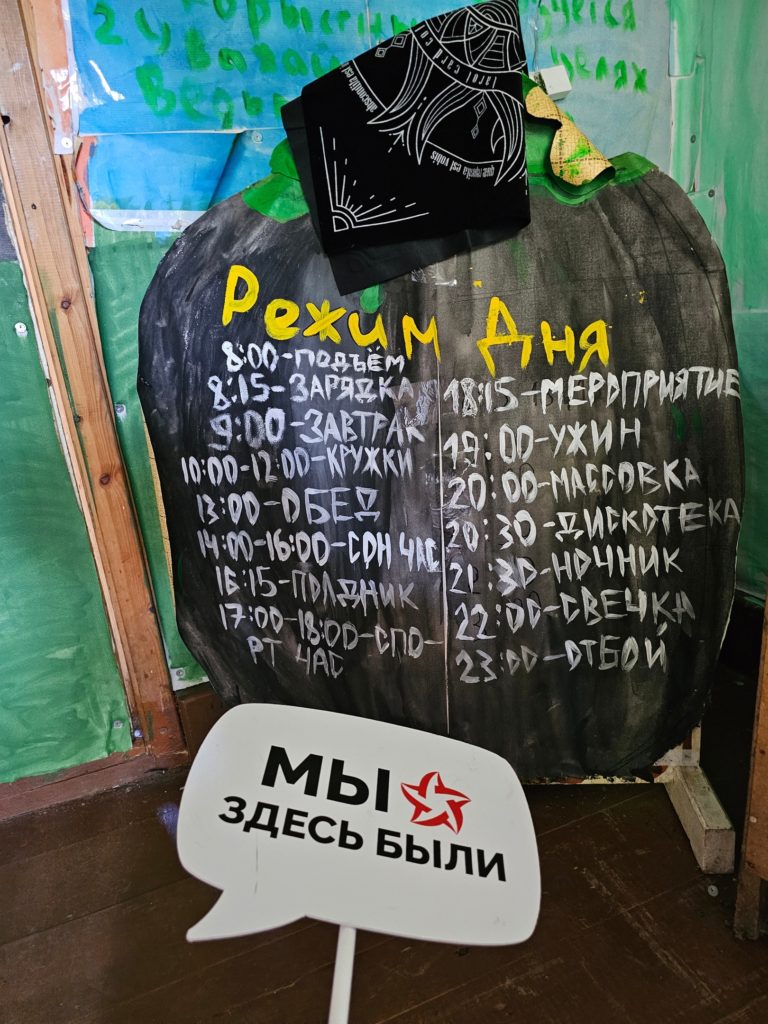 Режим Дня
8:00-ПОДЪЁМ
8:15-ЗАРЯДКА
9:00-ЗАВТРАК
10:00-12:00-КРУЖКИ
13:00-ОБЕД
14:00-16:00-СОН ЧАС
16:15-ПОЛДНИК
17:00-18:00-СПО-
РТ ЧАС
18:15-МЕРОПРИЯТИЕ
19:00-УЖИН
20:00-МАССОВКА
20:30-ДИСКОТЕКА
21:30-НОЧНИК
22:00-СВЕЧКА
23:00-ОТБОЙ
МЫ
ЗДЕСЬ БЫЛИ